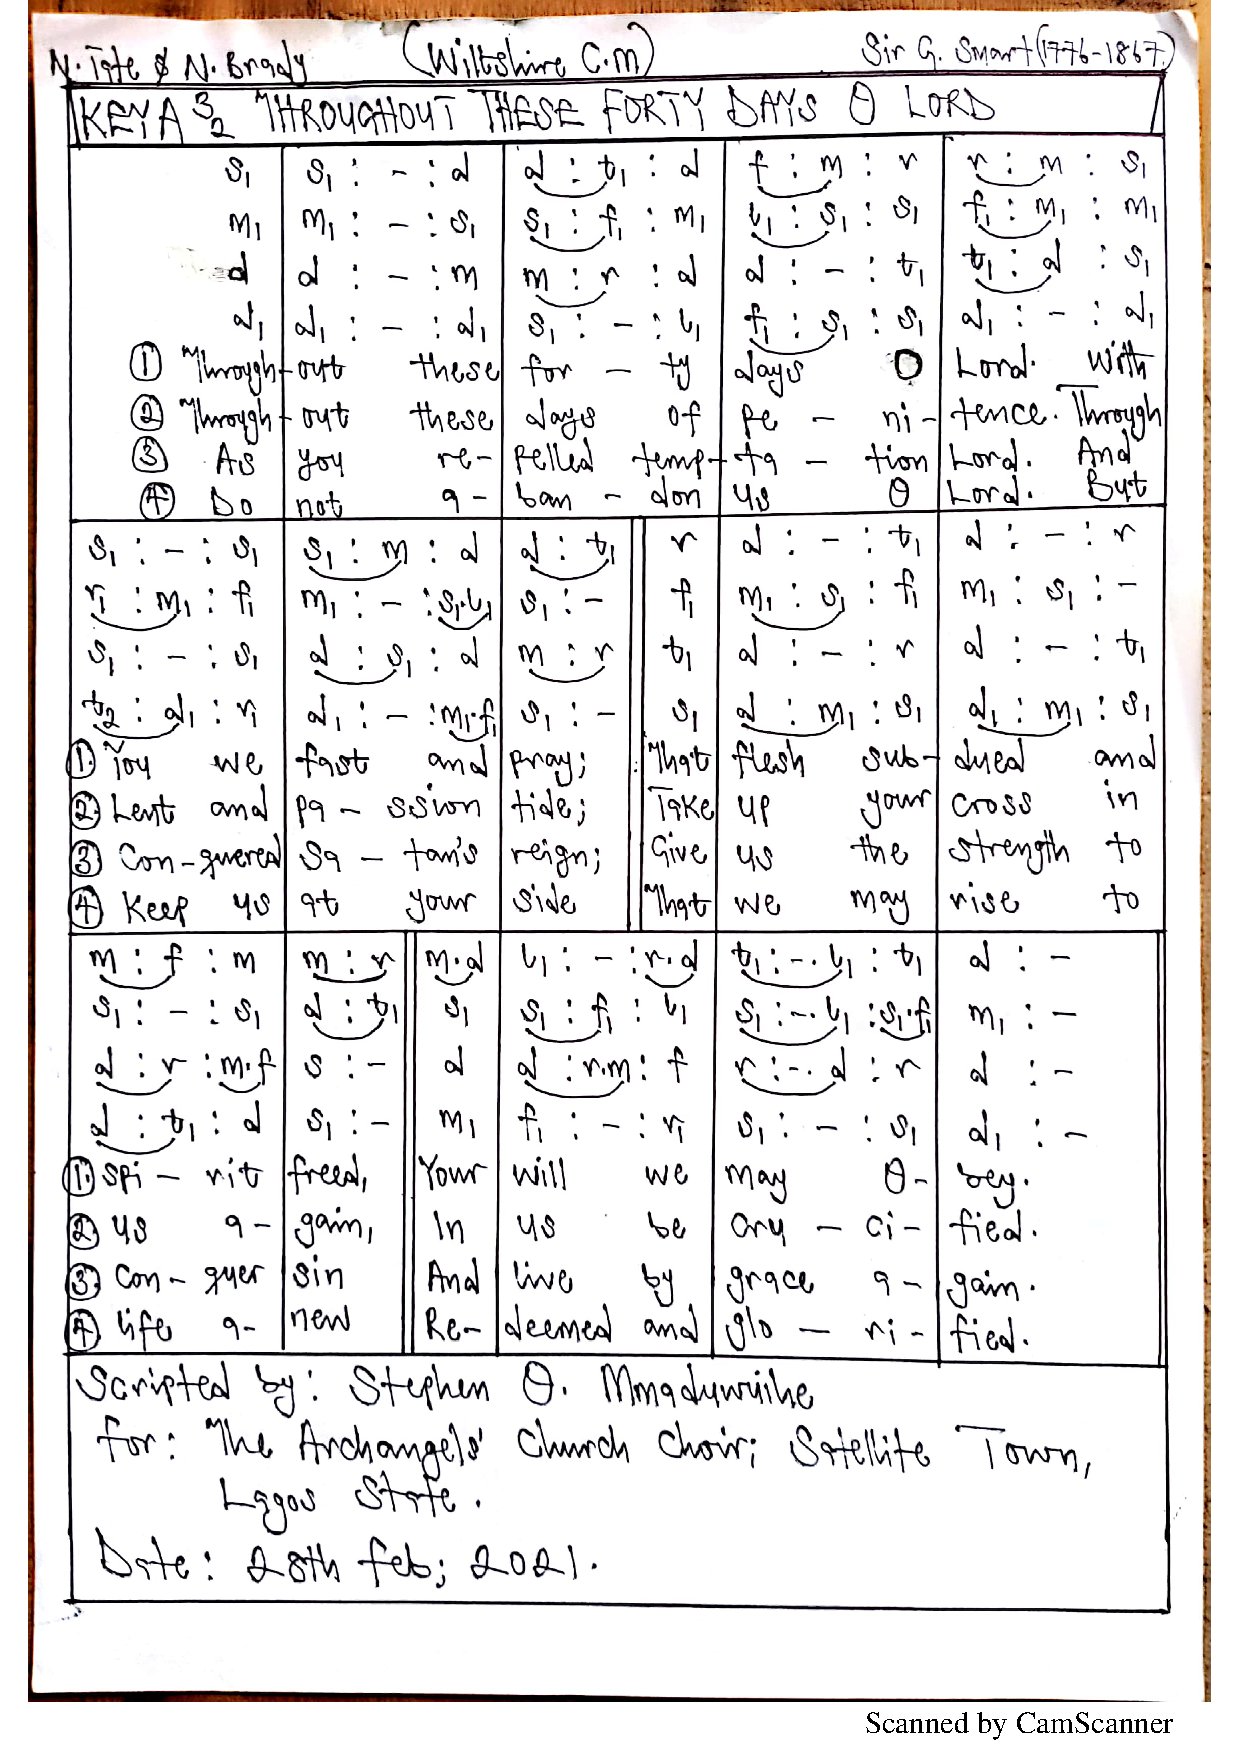 N. Tate & N. Brady (Wiltshire C.M) Sir G. Smart (1776-1867)
KEY A 3/2 THROUGHOUT THESE FORTY DAYS O LORD
s₁ | s₁ : - : d | d : t₁ : d | f : m : r | r : m : s₁
m₁ | m₁ : - : s₁ | s₁ : f₁ : m₁ | l₁ : s₁ : s₁ | f₁ : m₁ : m₁
d | d : - : m | m : r : d | d : - : t₁ | t₁ : d : s₁
d₁ | d₁ : - : d₁ | s₁ : - : l₁ | f₁ : s₁ : s₁ | d₁ : - : d₁
① Through-out these for - ty days O Lord. With
② Through-out these days of pe - ni - tence. Through
③ As you re- pelled temp-ta - tion Lord. And
④ Do not a - ban - don us O Lord. But
s₁ : - : s₁ | s₁ : m : d | d : t₁ || r | d : - : t₁ | d : - : r
r₁ : m₁ : f₁ | m₁ : - : s₁.l₁ | s₁ : - || f₁ | m₁ : s₁ : f₁ | m₁ : s₁ : -
s₁ : - : s₁ | d : s₁ : d | m : r || t₁ | d : - : r | d : - : t₁
t₂ : d₁ : r₁ | d₁ : - : m₁.f₁ | s₁ : - || s₁ | d : m₁ : s₁ | d₁ : m₁ : s₁
①. You we fast and pray; That flesh sub- dued and
② Lent and pa - ssion tide; Take up your cross in
③ Con-quered Sa - tan's reign; Give us the strength to
④ Keep us at your side That we may rise to
m : f : m | m : r || m.d | l₁ : - : r.d | t₁ : -. l₁ : t₁ | d : -
s₁ : - : s₁ | d : t₁ || s₁ | s₁ : f₁ : l₁ | s₁ : -. l₁ : s₁.f₁ | m₁ : -
d : r : m.f | s : - || d | d : r.m : f | r : -. d : r | d : -
d : t₁ : d | s₁ : - || m₁ | f₁ : - : r₁ | s₁ : - : s₁ | d₁ : -
①. Spi - rit freed, Your will we may O- bey.
② us a - gain, In us be cru - ci - fied.
③. Con- quer sin And live by grace a - gain.
④ life a- new Re- deemed and glo - ri - fied.
Scripted by: Stephen O. Mmaduwuihe
for: The Archangels' Church Choir; Satellite Town,
Lagos State.
Date: 28th Feb; 2021.
Scanned by CamScanner